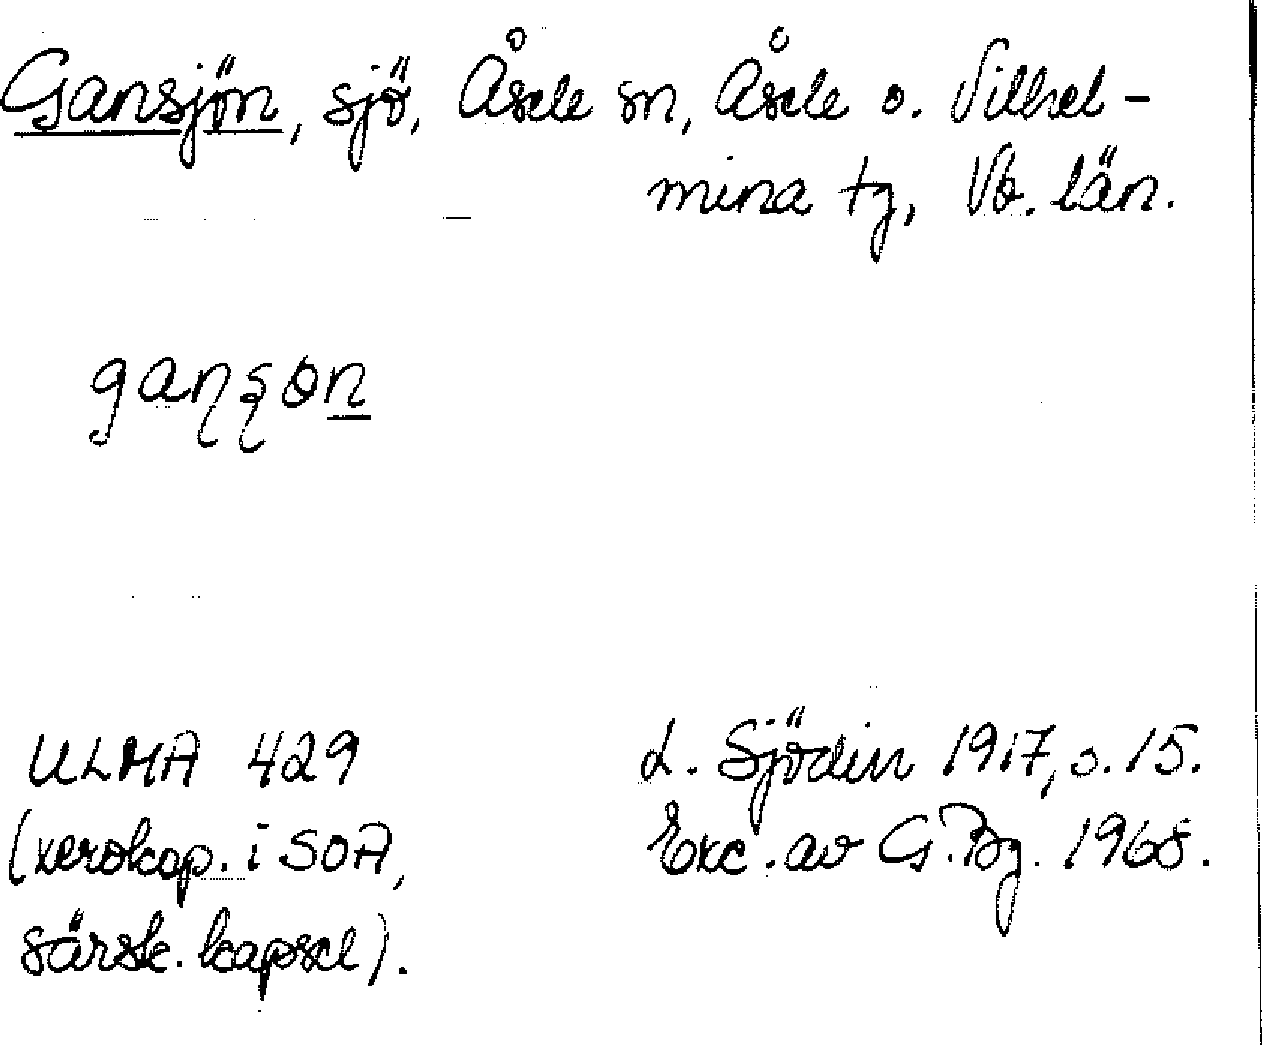 Gansjön, sjö, Åsele sn, Åsele o. Vilhel-
mina tg, Vb. län.
ULMA 429
(xerokop. i SOA,
särsk. kapsel).
L. Sjödin 1917, s. 15.
Exc. av G. Bg. 1968.